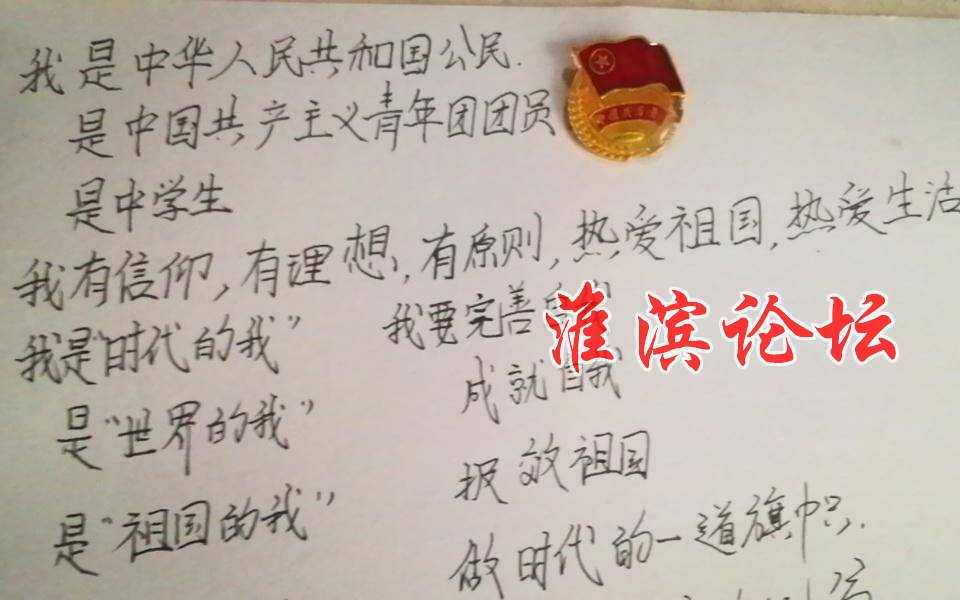 我是中华人民共和国公民.
是中国共产主义青年团团员
是中学生
我有信仰,有理想,有原则,热爱祖国,热爱生活
我是“时代的我”
是“世界的我”
是“祖国的我”
我要完善自我
成就自我
报效祖国
做时代的一道旗帜.
淮滨论坛